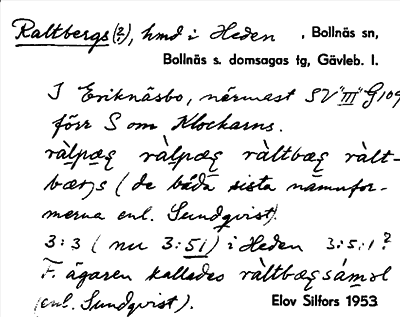 Raltbergs (?), hmd i Heden , Bollnäs sn,
Bollnäs s. domsagas tg, Gävleb. l.
I Eriknäsbo, närmast SV "III" G 109
förr S om Klockarns.
ràlpæg ràlpæg ràltbæg ràlt-
bærs (de båda sista namnfor-
merna enl. Sundqvist)
3:3 (nu 3:51) i Heden 3:5:1?
F. ägaren kallades ràltbæg
(enl. Sundqvist). Elov Silfors 1953